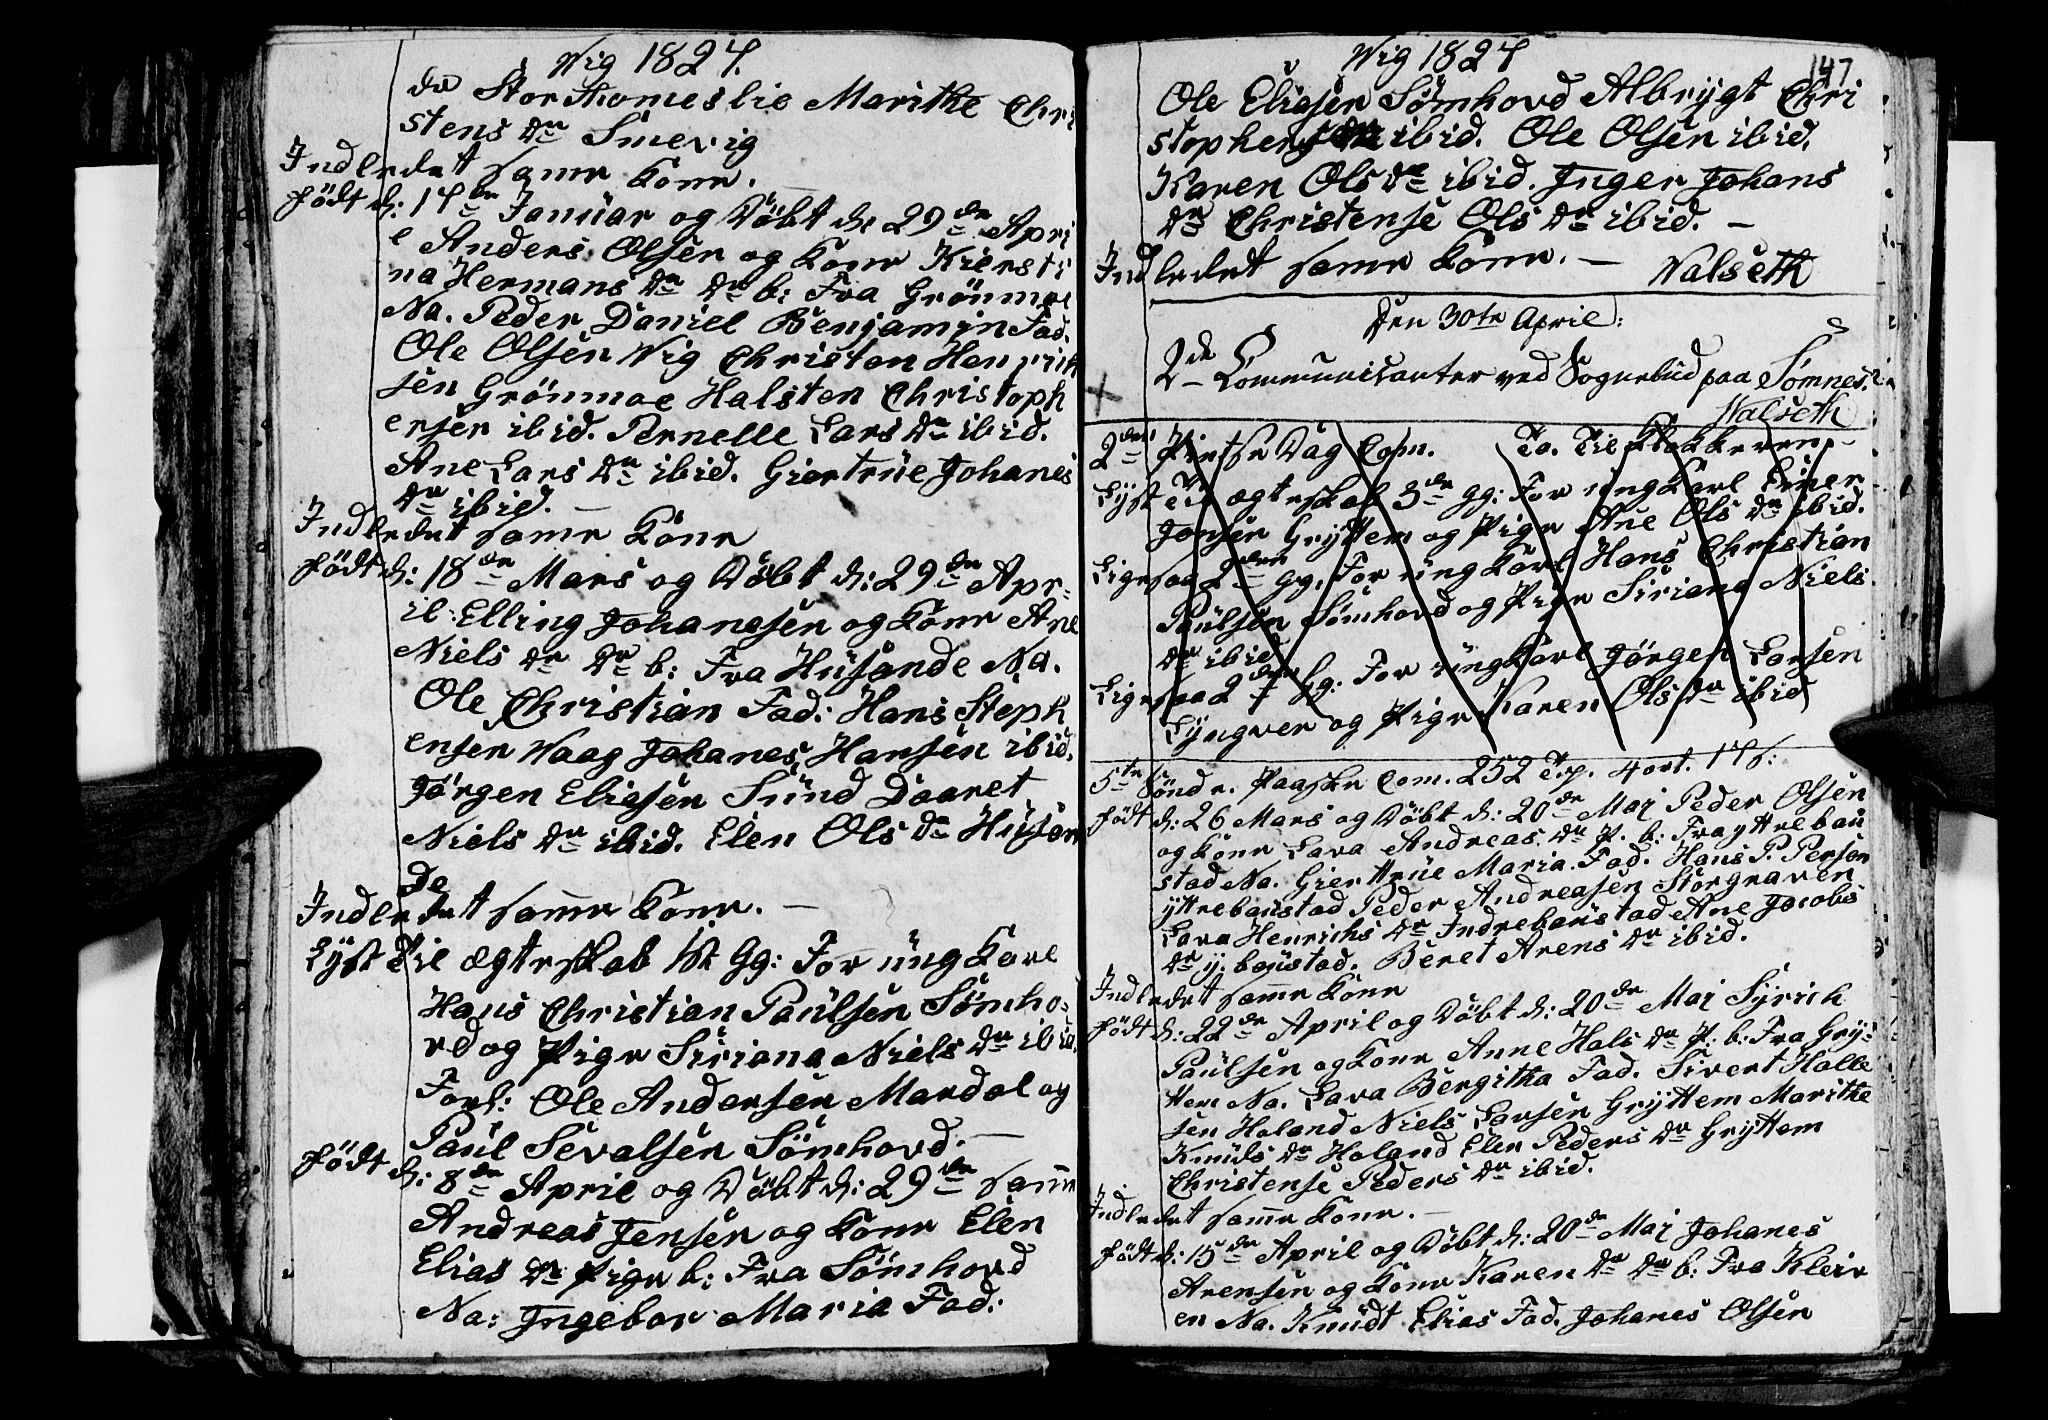 Wig 1827.
de Stor Thomeslie Marithe Chri
stens dr Smevig
Indledet samme Kone.
Født d: 17de Januar og Døbt d: 29de Apri
l Anders Olsen og Kone Kiersti
na Hermans dr dr b: Fra Grønmoe
Na. Peder Daniel Benjamin Fad.
Ole Olsen Wig Christen Henrich
sen Grønmoe Halsten Christoph
ersen ibid. Pernelle Lars dr ibid.
Ane Lars dr ibid. Giertrue Johanes
dr ibid. —
Indledet samme Kone
Født d: 18de Mars og Døbt d: 29de Apr-
il: Elling Johanesen og Kone Ane
Niels dr dr b: Fra Husande Na.
Ole Christian Fad: Hans Steph
ensen Waag Johanes Hansen ibid.
Jørgen Eliesen Sund Daaret
Niels dr ibid. Elen Ols dr Husan
de
Indledet samme Kone. —
Lyst Til Ægteskab 1ste Gg: For ungkarl
Hans Christian Paulsen Sømho-
vd og Pige Siriana Niels dr ibid.
Forl: Ole Andersen Mardal og
Paul Sevalsen Sømhovd. —
Født d: 8de April og Døbt d: 29de samme
Andreas Jensen og Kone Elen
Elias dr Pige b: Fra Sømhovd
Na: Ingebor Maria Fad:
Wig 1827
147
Ole Eliesen Sømhovd Albrygt Chri
stophersen ibid. Ole Olsen ibid.
Karen Ols dr ibid. Inger Johans
dr Christense Ols dr ibid. —
Indledet samme Kone. — Walseth
Den 30te April:
2de Communicanter ved Sognebud paa Sømnes.
Walseth
2den Pintse Dag Com. To. Til Klokkeren
Lyst Til Ægteskab 3de gg: For ungkarl Einer
Jonsen Gryttem og Pige Ane Ols dr ibid.
Ligesaa 2den Gg. For ungkarl Hans Christian
Paulsen Sømhovd og Pige Siriana Niels
dr ibid
Ligesaa 2den Gg: For ungkarl Jørgen Larsen
Lyngver og Pige Karen Ols dr ibid
5te Sønd e. Paaske Com. 252 Tp. 4 ort. 17 s:
Født d: 26 Mars og Døbt d: 20de Maj Peder Olsen
og Kone Lava Andreas dr P. b: Fra yttrebau
stad Na. Gierttrue Maria. Fad. Hans P. Person
yttrebaustad Peder Andreasen Storgraven
Lava Henrichs dr Indrebaustad Ane Jacobs
dr y. baustad. Beret Arens dr ibid.
Indledet samme Kone
Født d: 22de April og Døbt d: 20de Maj Syrich
Paulsen og Kone Anne Hals dr P: b: Fra Gry-
ttem Na. Lava Bergitha Fad. Sivert Halle
sen Holand Niels Larsen Gryttem Marithe
Knuds dr Holand Elen Peders dr Gryttem
Christense Peders dr ibid.
Indledet samme Kone. —
Født d: 15de April og Døbt d: 20de Maj Johanes
Arensen og Kone Karen dr dr b: Fra Kleiv
en Na. Knudt Elias Fad. Johanes Olsen